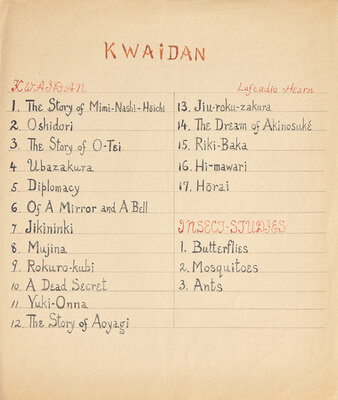 KWAIDAN
KWAIDAN
1. The Story of Mimi-Nashi-Hōichi
2 Oshidori
3 The Story of O-Tei
4 Ubazakura
5 Diplomacy
6 Of A Mirror and A Bell
7 Jikininki
8. Mujina
9. Rokuro-kubi
10. A Dead Secret
11 Yuki-Onna
12. The Story of Aoyagi
Lafcadio Hearn
13. Jiu-roku-zakura
14. The Dream of Akinosuké
15. Riki-Baka
16. Hi-mawari
17. Hōrai
INSECT-STUDIES
1. Butterflies
2. Mosquitoes
3. Ants